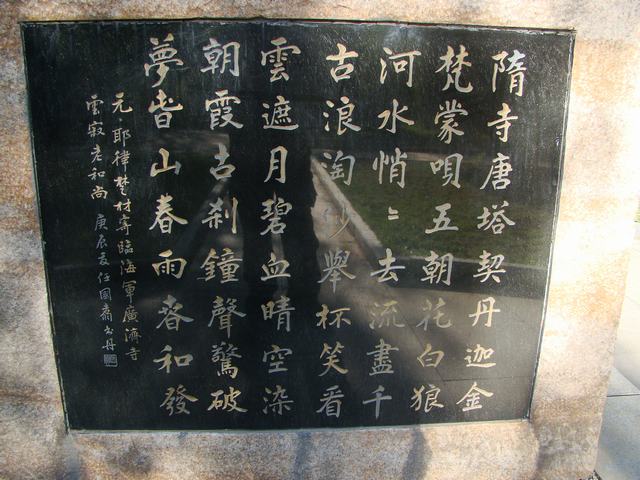 隋寺唐塔契丹迦金
梵蒙唄五朝花白狼
河水悄〻去流盡千
古浪淘沙舉杯笑看
雲遮月碧血晴空染
朝霞古刹鐘聲驚破
夢昏山春雨春和發
元·耶律楚材寄臨海軍廣濟寺
雲寂老和尚 庚辰夏任國肅書丹